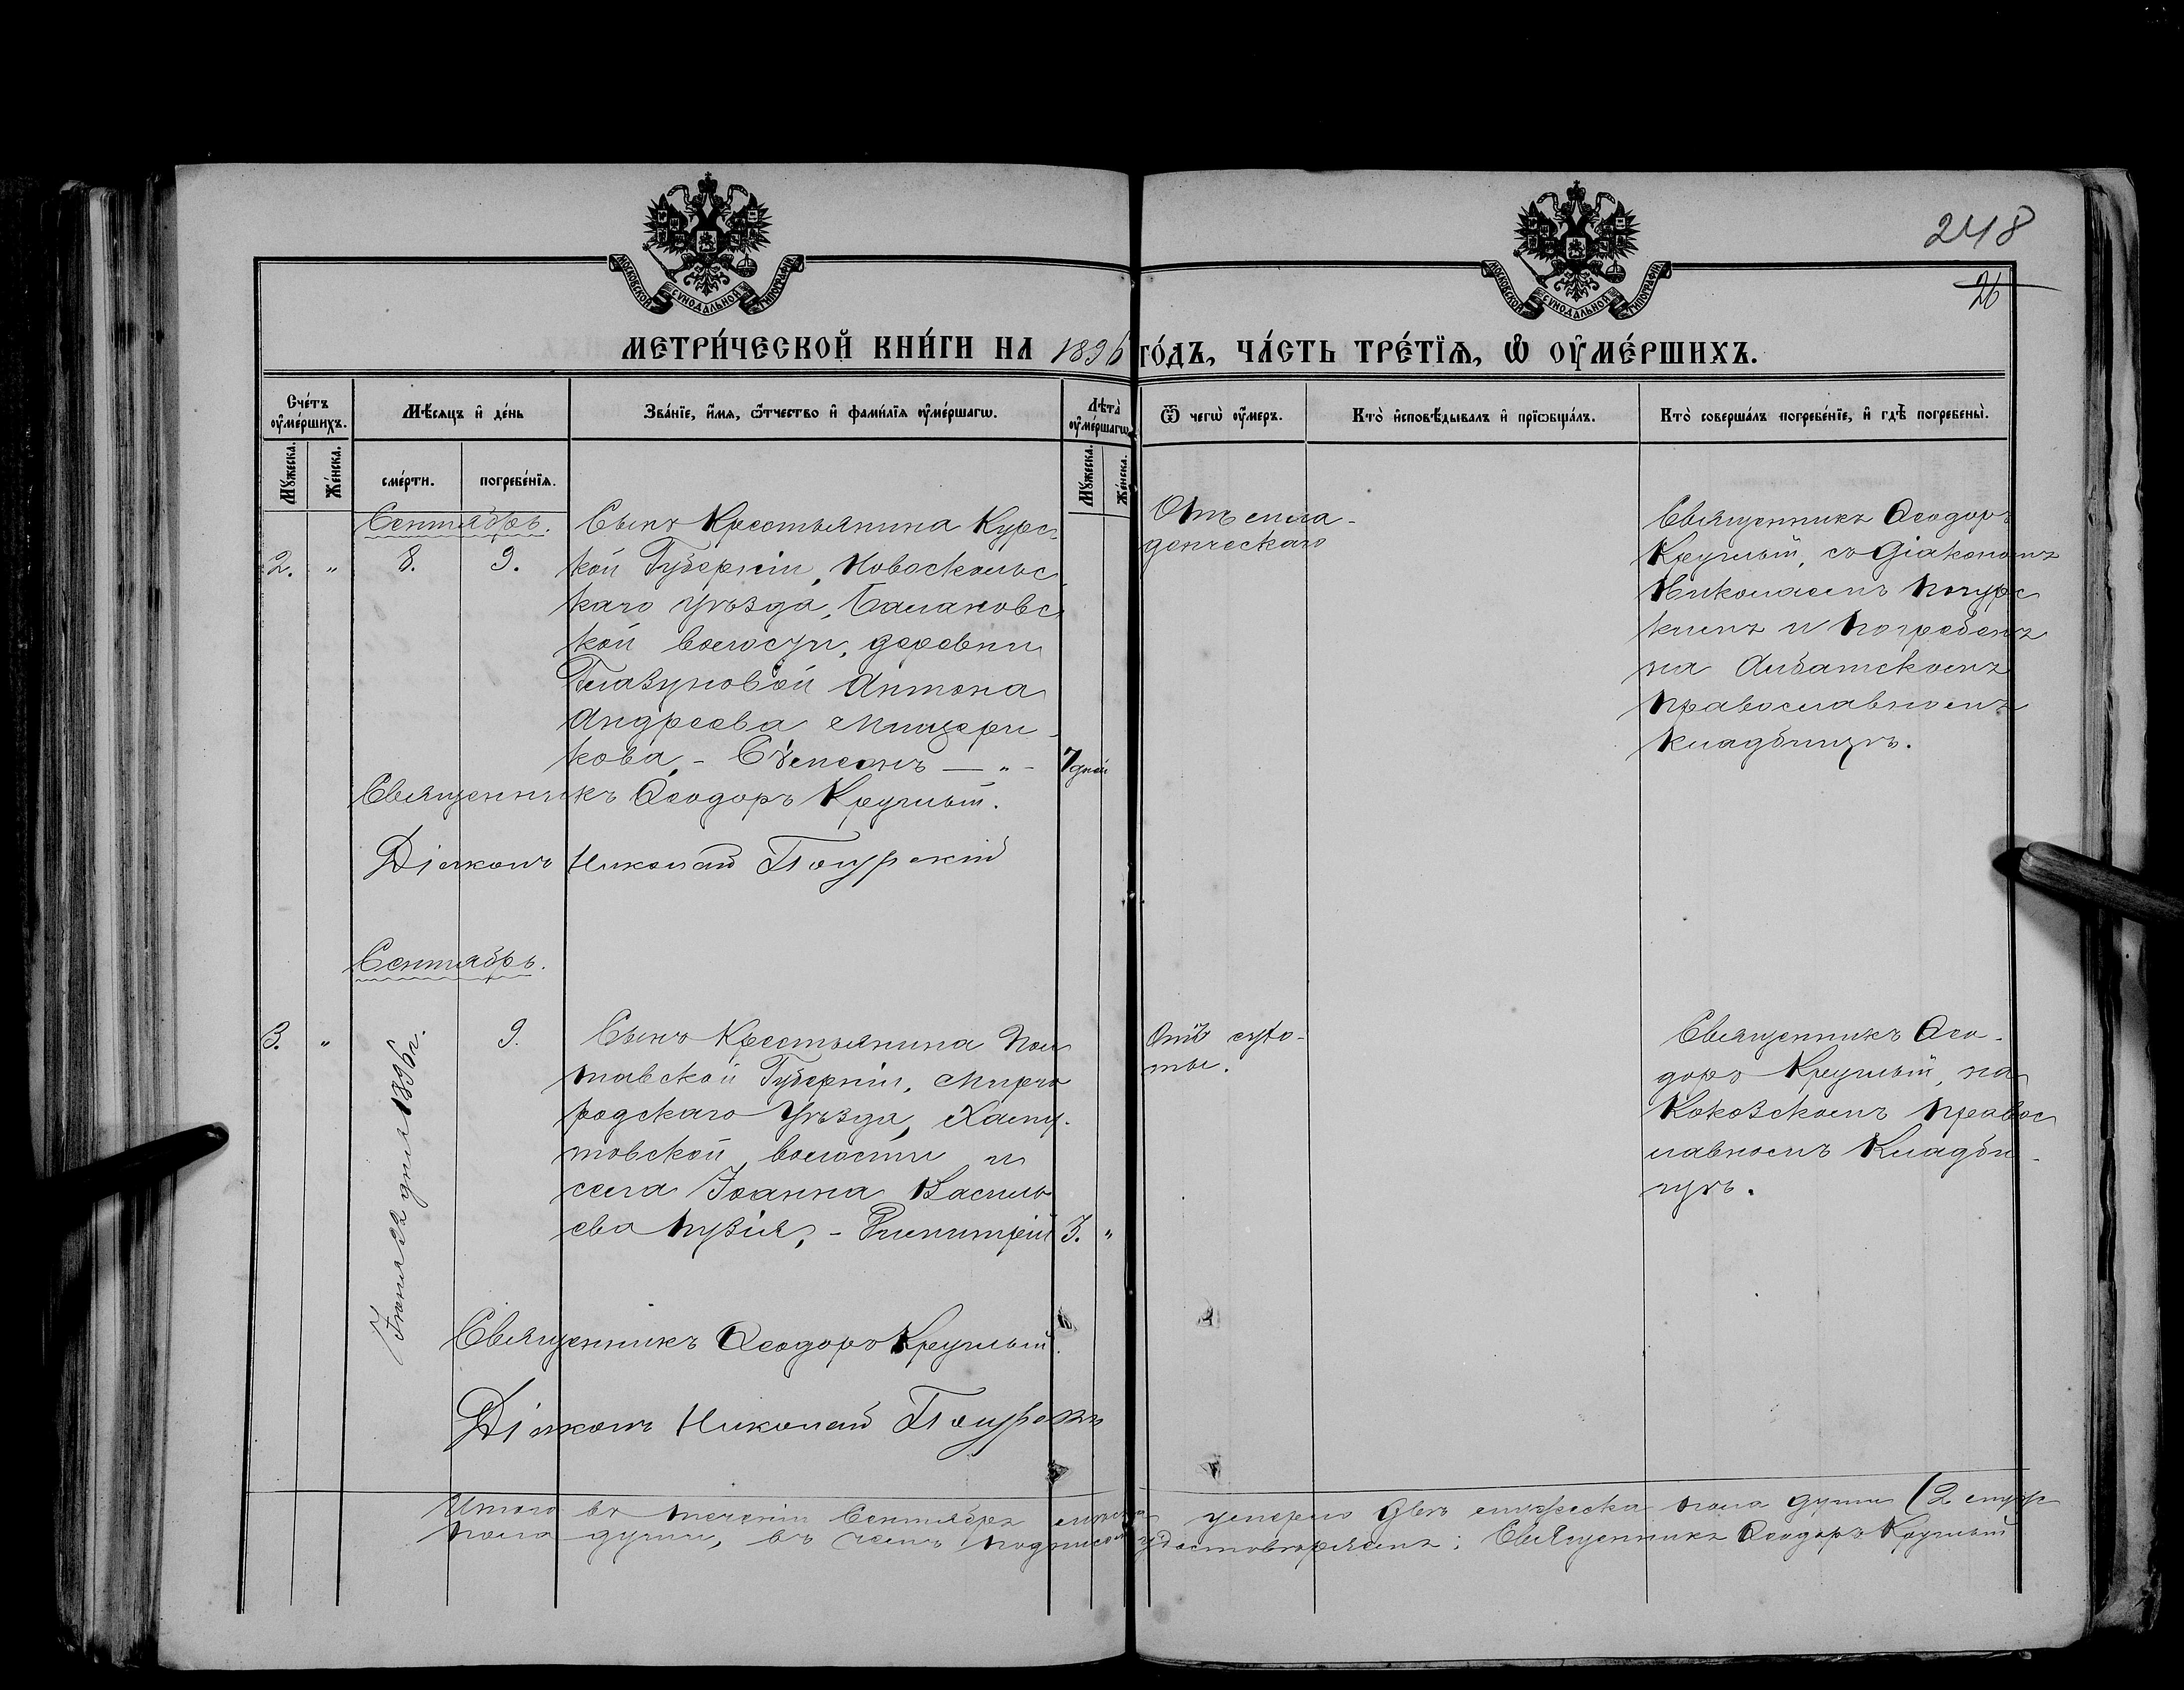 248
26
МОСКОВСКОЙ СУНОДАЛЬНОЙ ТИПОГРАФІИ
МОСКОВСКОЙ СУНОДАЛЬНОЙ ТИПОГРАФІИ
МЕТРИ́ЧЕСКОЙ КНИ́ГИ НА 1896 ГО́ДЪ, ЧА́СТЬ ТРЕ́ТЇѦ, Ѡ҆ ОУ҆МЕ́РШИХЪ.
Сче́тъ оу҆ме́ршихъ.
Мꙋ́жеска.
Же́нска.
Мѣ́сѧцъ и҆ де́нь
сме́рти.
погребе́нїѧ.
Зва́нїе, и҆́мѧ, ѻ҆́тчество и҆ фами́лїѧ оу҆ме́ршагѡ.
Лѣта̀ оу҆ме́ршагѡ.
Мꙋ́жеска.
Же́нска.
Ѿ чегѡ̀ оу҆́меръ.
Кто̀ и҆сповѣ́дывалъ и҆ прїѡбща́лъ.
Кто̀ соверша́лъ погребе́нїе, и҆ гдѣ̀ погребены̀.
Сентябрь.
2. " 8. 9.
Сынъ Крестьянина Курс
кой Губерніи, Новоскольс
каго уѣзда,
кой волости, деревни
Глазуновой Антона
Андреева
кова, - Сѵмеонъ — " -
7 дней
Отъ мла-
денческаго
Священникъ Ѳеодоръ
Круглый, съ Діакономъ
Николаемъ
кимъ и погребенъ
на Албатскомъ
православномъ
кладбищѣ.
Священникъ Ѳеодоръ Круглый.
Діаконъ Николай
Сентябрь.
3. " Іюля 22 дня 1896 г. 9.
Сынъ Крестьянина Пол
тавской Губерніи, Мирго
родскаго Уѣзда, Хаму-
товской волости и
села Іоанна Василь
ева Пузія, - Димитрій
3. "
Отъ сухо-
ты.
Священникъ Ѳео-
доръ Круглый, на
Кокозскомъ правос
лавномъ Кладби-
щѣ.
Священникъ Ѳеодоръ Круглый.
Діаконъ Николай
Итого въ теченіи Сентября умерло двѣ мужеска пола души (2 муж
пола души, въ чемъ подписомъ удостовѣряемъ: Священникъ Ѳеодоръ Круглый